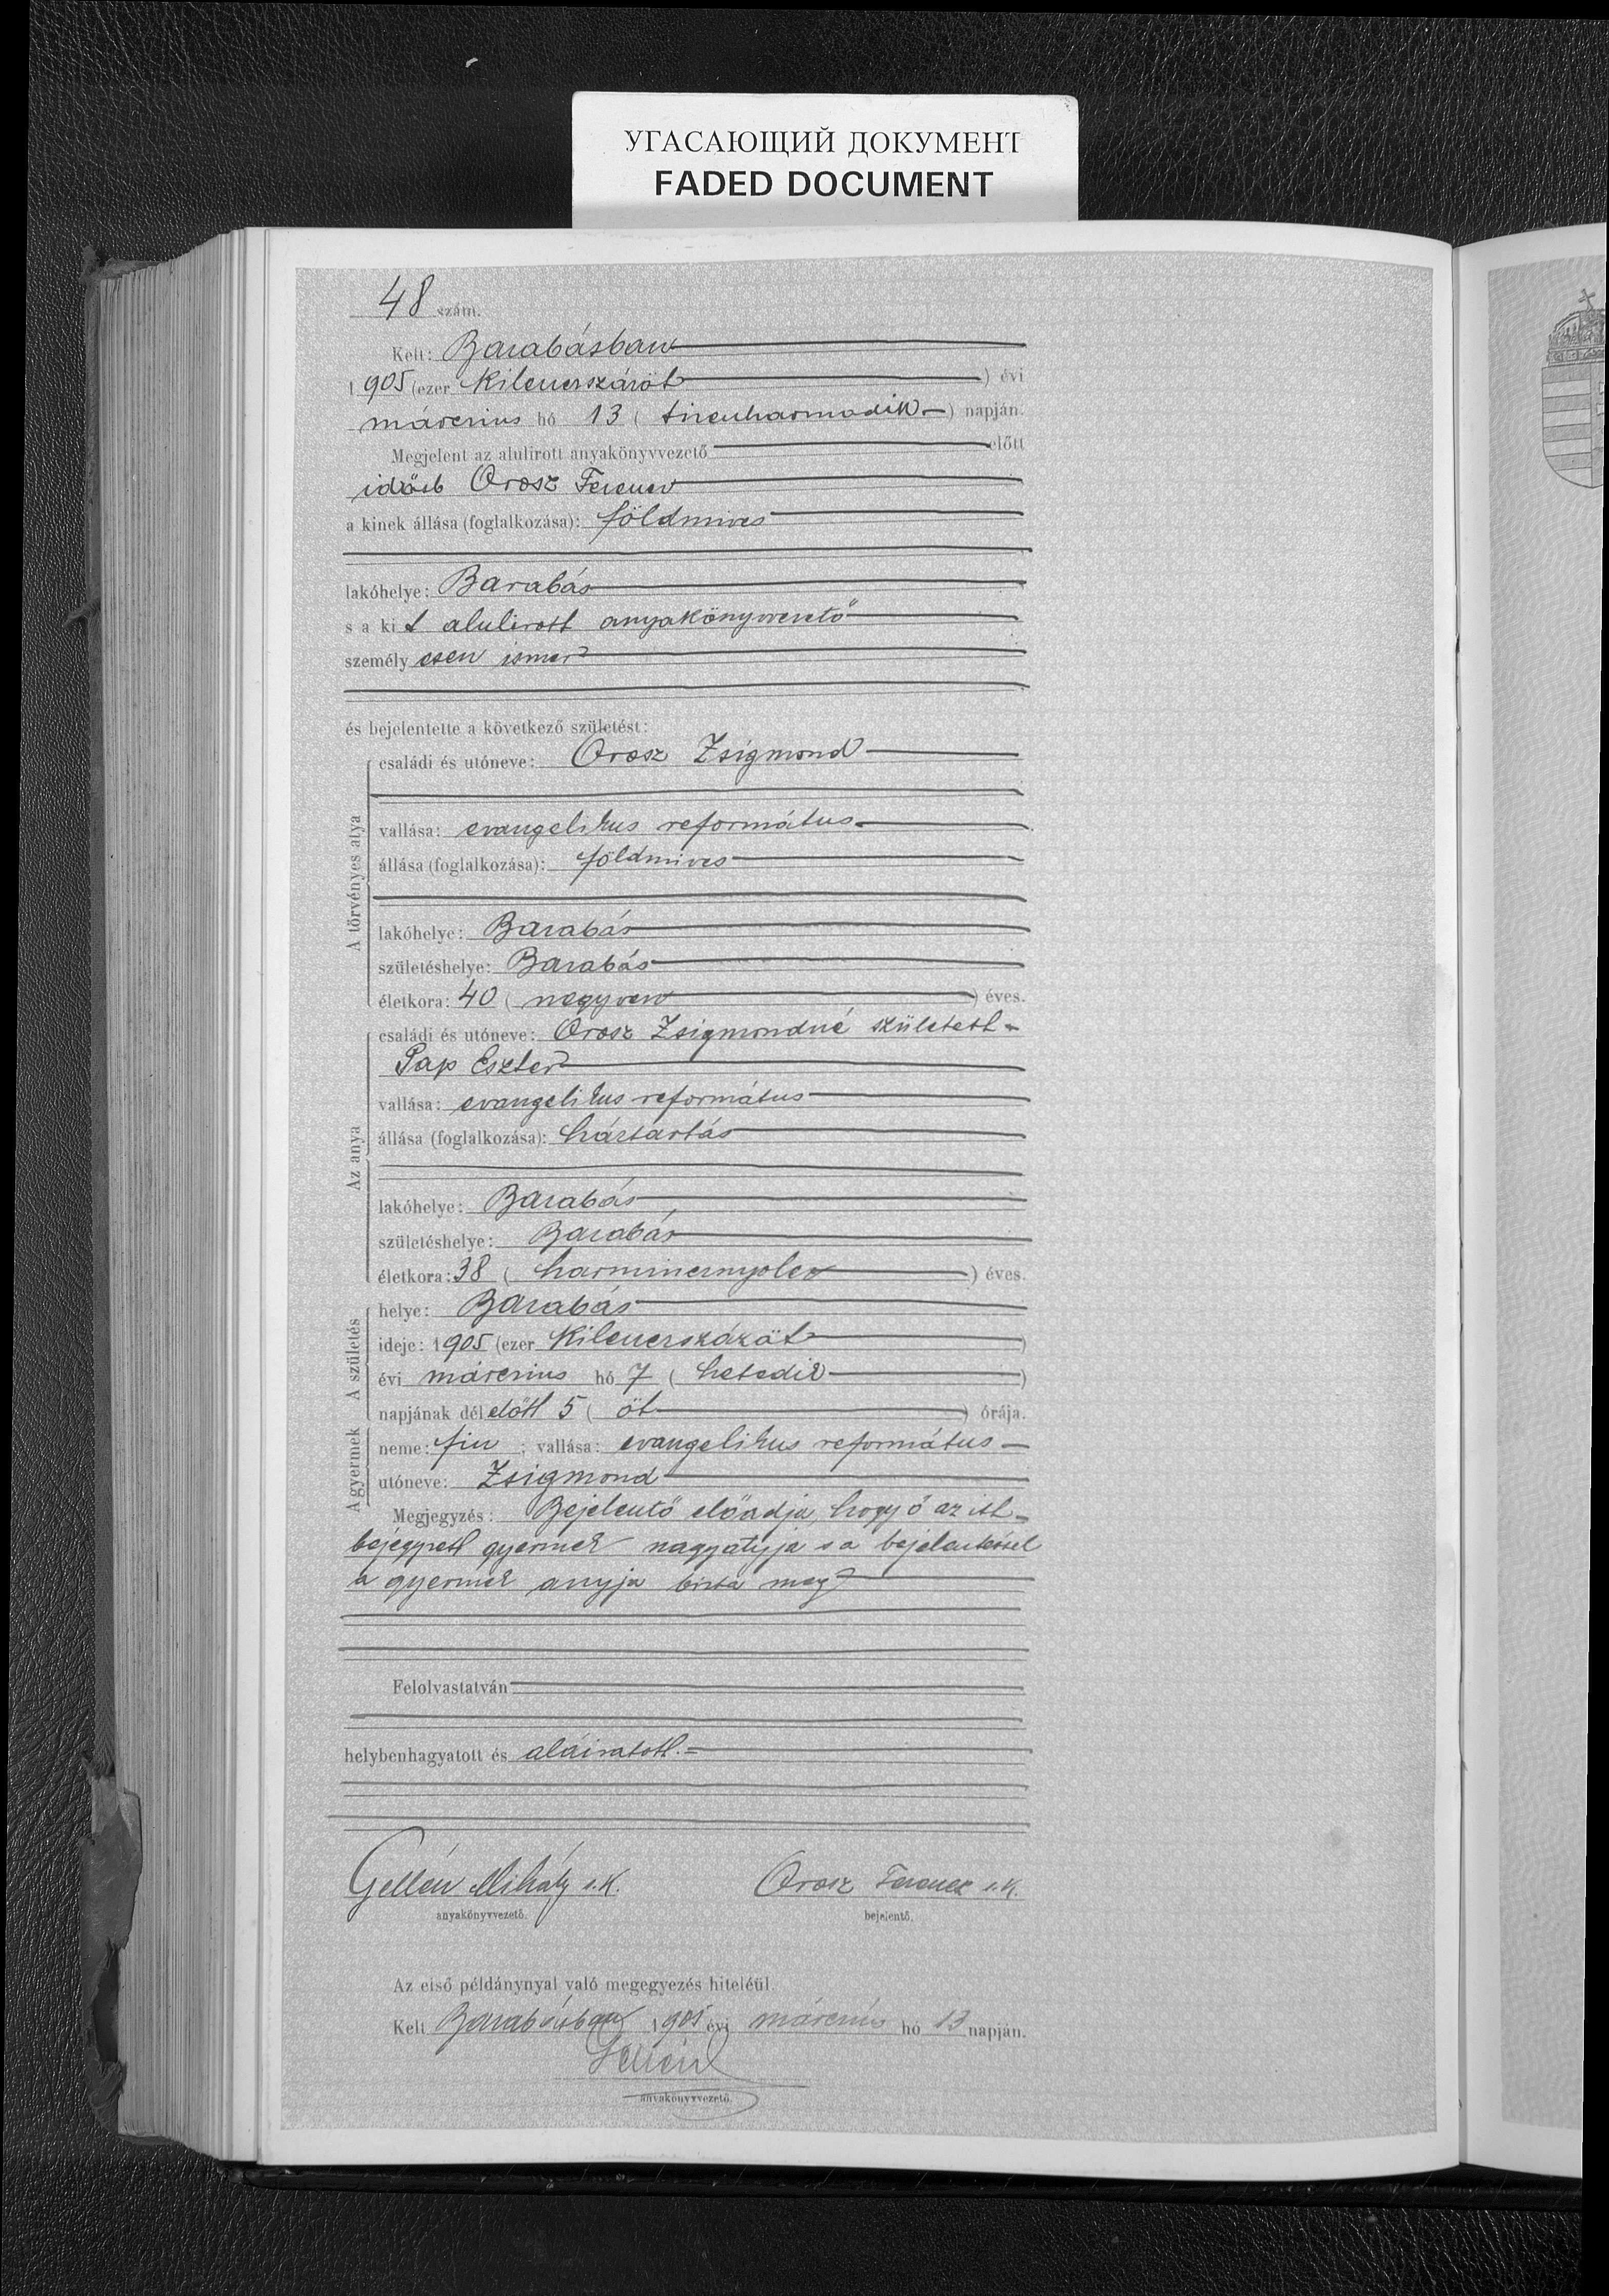 УГАСАЮЩИЙ ДОКУМЕНТ
FADED DOCUMENT
48 szám.
Kelt: Barabásban
1905 (ezer kilencszázöt) évi
márczius hó 13 (tizenharmadik) napján.
Megjelent az alulirott anyakönyvvezető előtt
idősb Orosz Ferencz
a kinek állása (foglalkozása): földmives
lakóhelye: Barabás
s a kit alulirott anyakönyvvezető
személyesen ismer
és bejelentette a következő születést:
A törvényes atya
családi és utóneve: Orosz Zsigmond
vallása: evangelikus református
állása (foglalkozása): földmives
lakóhelye: Barabás
születéshelye: Barabás
életkora: 40 (negyven) éves.
Az anya
családi és utóneve: Orosz Zsigmondné született
Pap Eszter
vallása: evangelikus református
állása (foglalkozása): háztartás
lakóhelye: Barabás
születéshelye: Barabás
életkora: 38 (harmincznyolcz) éves.
A születés
helye: Barabás
ideje: 1905 (ezer kilencszázöt)
évi márczius hó 7 (hetedik)
napjának délelőtt 5 (öt) órája.
A gyermek
neme: fiu; vallása: evangelikus református
utóneve: Zsigmond
Megjegyzés: Bejelentő előadja, hogy ő az itt
bejegyzett gyermek nagyatyja s a bejelentéssel
a gyermek anyja bizta meg
Felolvastatván
helybenhagyatott és aláiratott.
Gellén Mihály s.k. Orosz Ferencz s.k.
anyakönyvvezető. bejelentő.
Az első példánynyal való megegyezés hiteléül.
Kelt Barabásban 1905 évi márczius hó 13 napján.
Gellén
anyakönyvvezető.